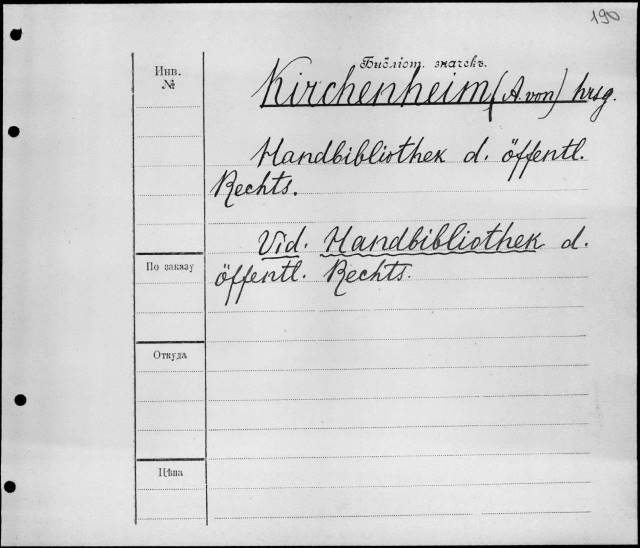 190
Библіот. значекъ.
Инв.
№
Kirchenheim (A. von) hrsg.
Handbibliothek d. öffentl.
Rechts.
Vid. Handbibliothek d.
По заказу
öffentl. Rechts.
Откуда
Цѣна